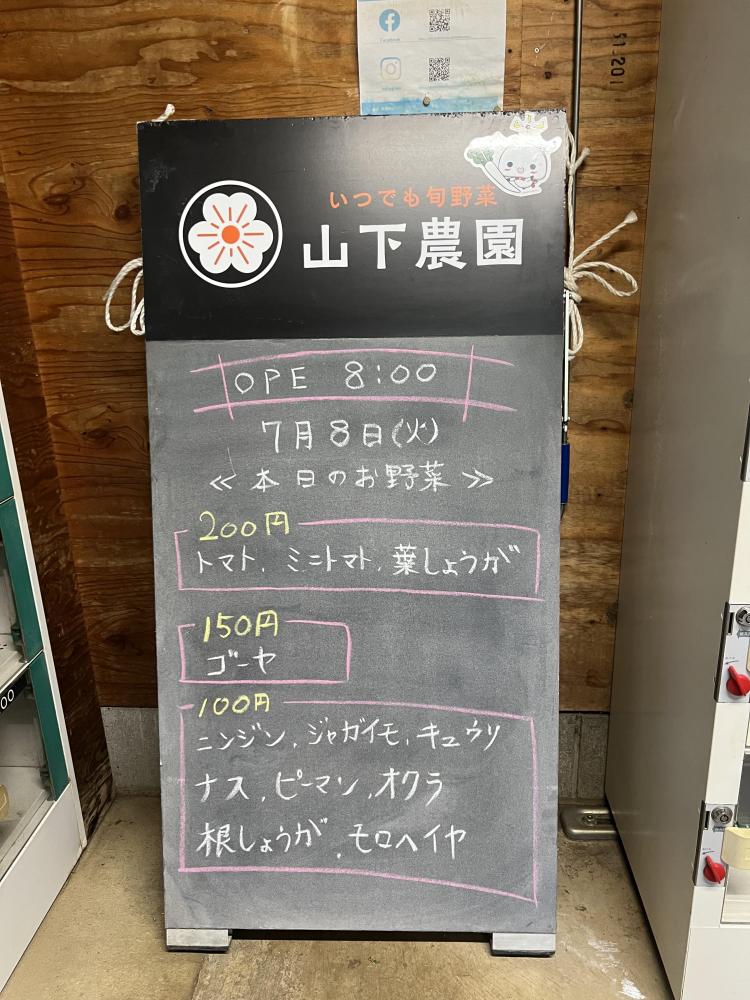 Facebook
Instagram
51 20
いつでも旬野菜
山下農園
OPE 8:00
7月8日(火)
≪本日のお野菜≫
200円
トマト、ミニトマト、葉しょうが
150円
ゴーヤ
100円
ニンジン、ジャガイモ、キュウリ
ナス、ピーマン、オクラ
根しょうが、モロヘイヤ